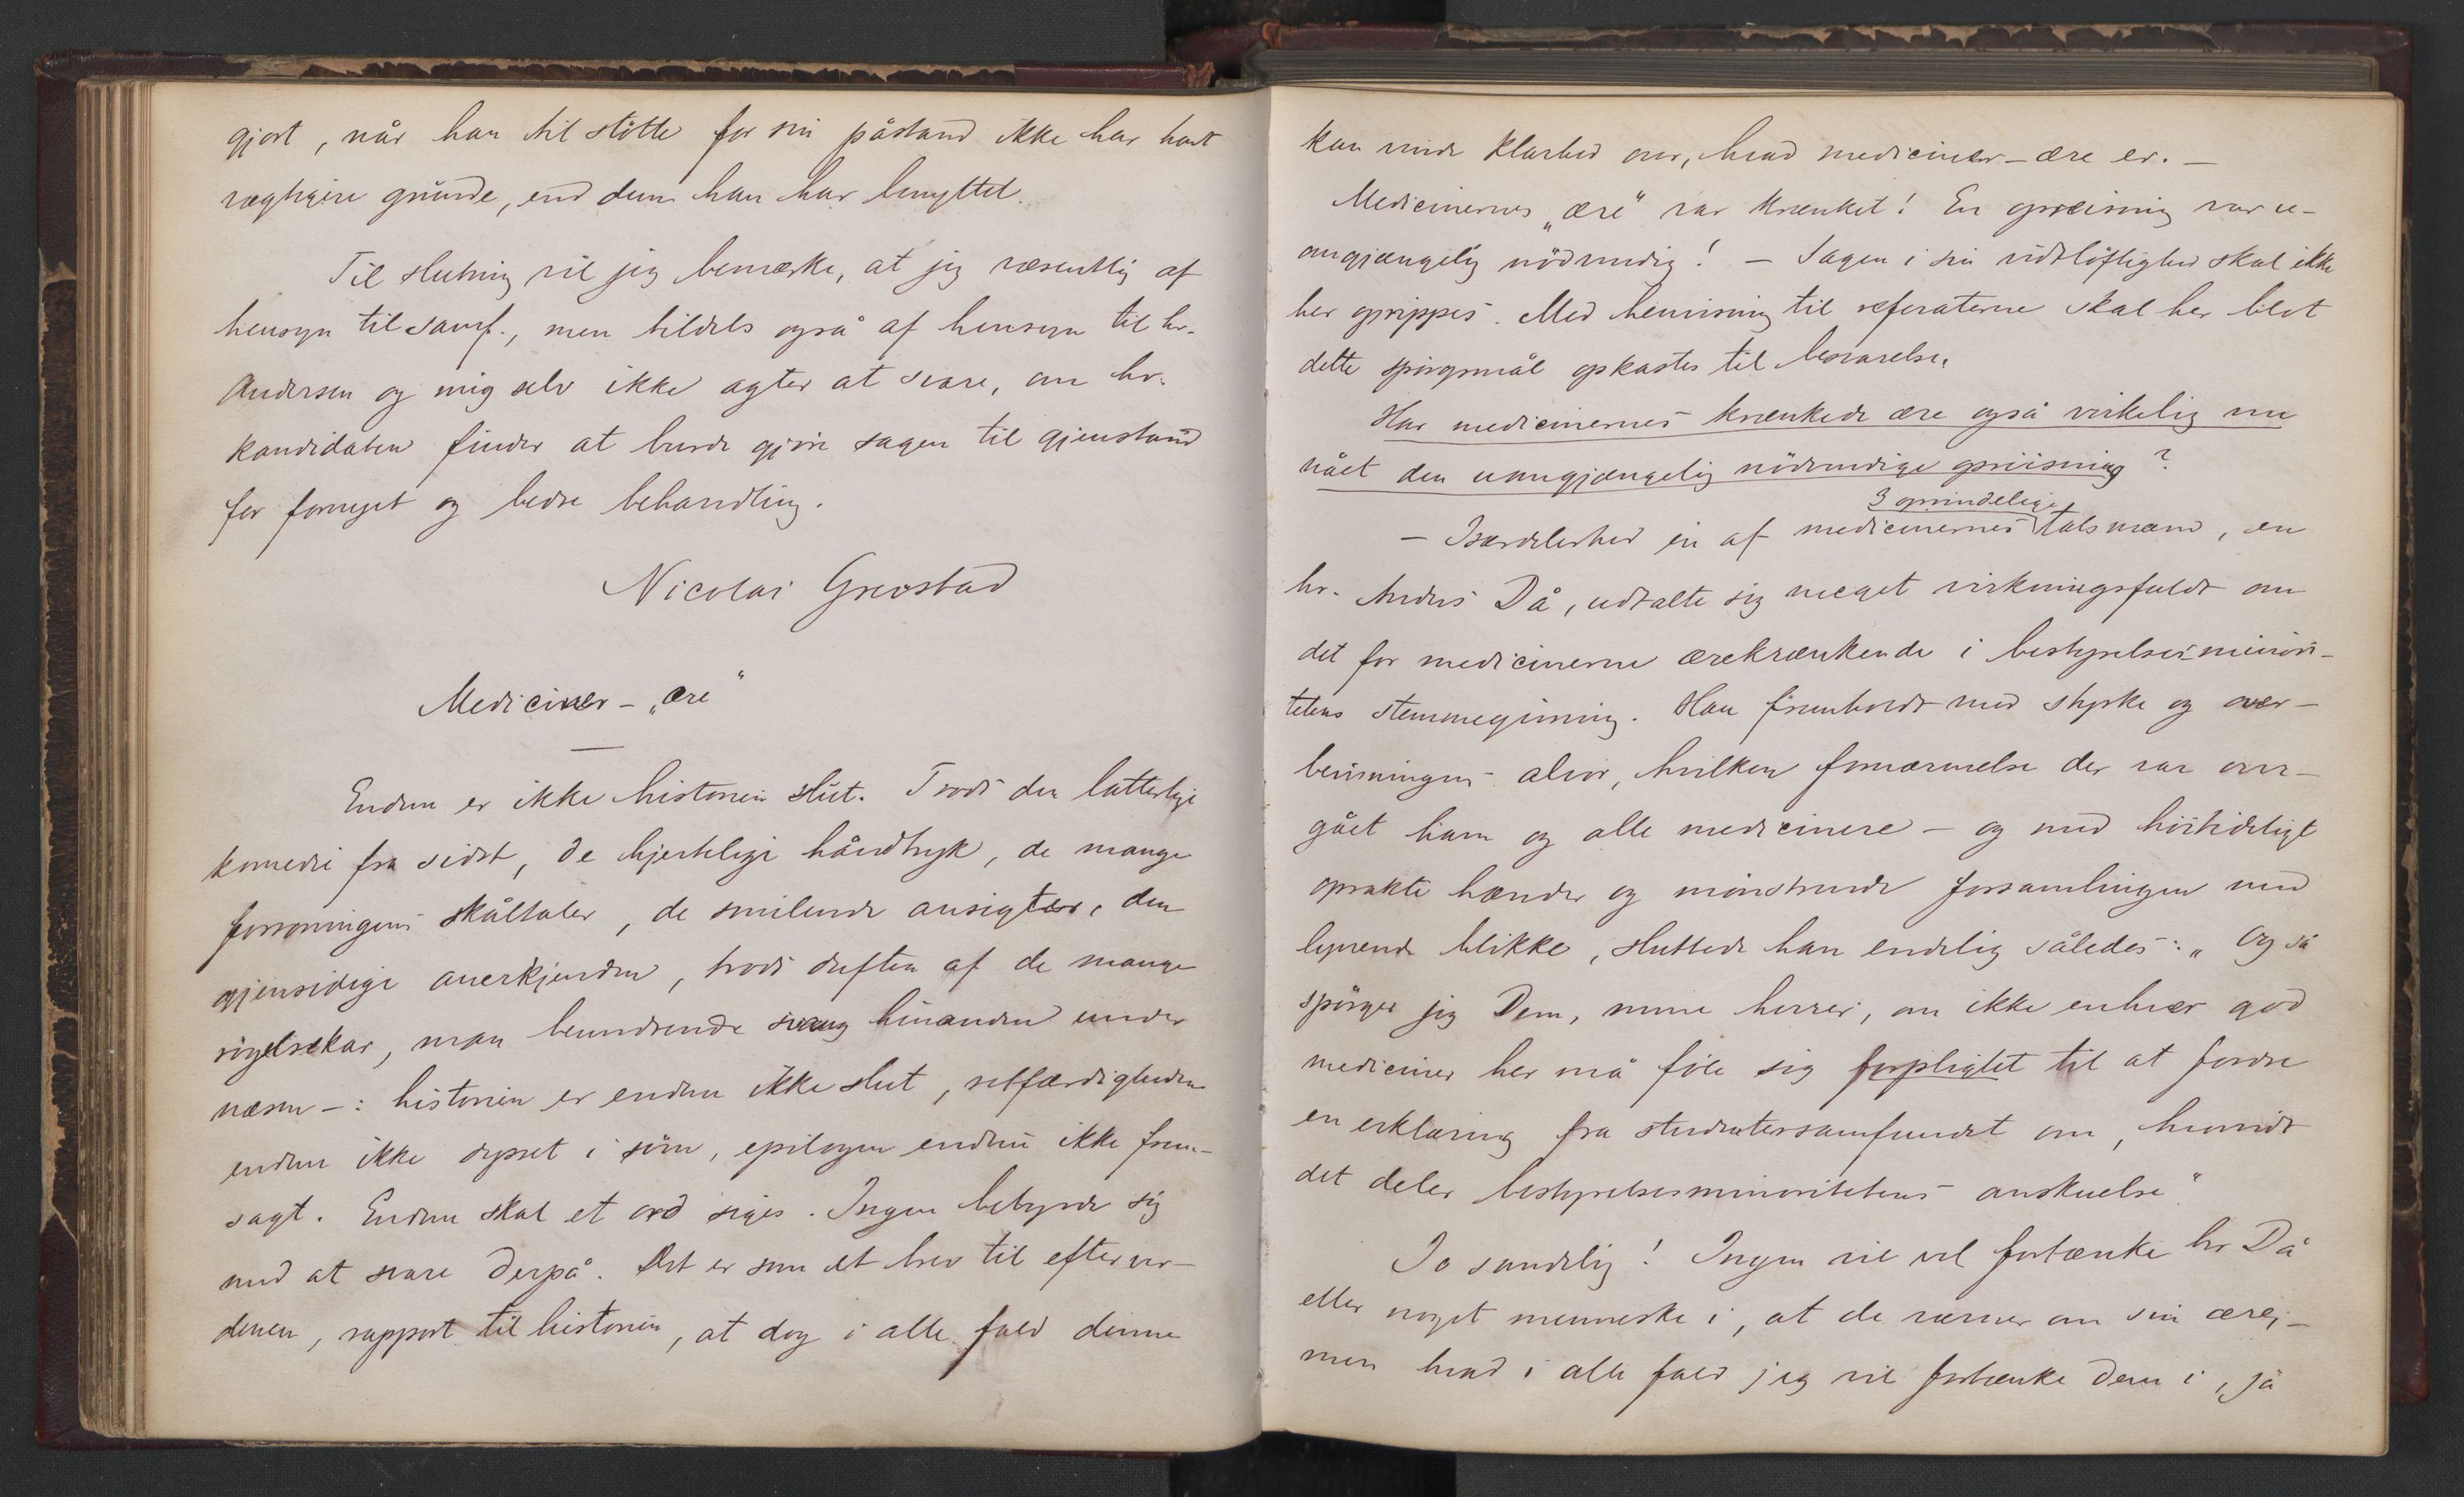 gjort, når han til støtte for sin påstand ikke har havt
vægtigere grunde, end dem han har benyttet.
Til slutning vil jeg bemærke, at jeg væsentlig af
hensyn til samf., men tildels også af hensyn til hr.
Andersen og mig selv ikke agter at svare, om hr.
kandidaten finder at burde gjøre sagen til gjenstand
for fornyet og bedre behandling.
Nicolai Grevstad
Mediciner - „ære“
Endnu er ikke historien slut. Trods den latterlige
komedie fra sidst, de hjertelige håndtryk, de mange
forsoningens skåltaler, de smilende ansigter, den
gjensidige anerkjenden, trods duften af de mange
røgelsekar, man beundrende svang hinanden under
næsen -: historien er endnu ikke slut, retfærdigheden
endnu ikke sysset i søvn, epilogen endnu ikke frem-
sagt. Endnu skal et ord siges. Ingen bebyrde sig
med at svare derpå. Det er som et brev til efterver-
denen, rapport til historien, at dog i alle fald denne
kan vinde klarhed over, hvad mediciner-ære er. -
Medicinernes „ære“ var krænket! En opreisning var u-
omgjængelig nødvendig! - Sagen i sin vidtløftighed skal ikke
her oprippes. Med henvisning til referaterne skal her blot
dette spørgsmål opkastes til besvarelse.
Har medicinernes krænkede ære også virkelig nu
nået den uomgjængelig nødvendige opreisning?
- Isærdeleshed én af medicinernes 3 oprindelige talsmænd, en
hr. Anders Då, udtalte sig meget virkningsfuldt om
det for medicinerne ærekrænkende i bestyrelsesminori-
tetens stemmegivning. Han fremholdt med styrke og over-
bevisningens alvor, hvilken fornærmelse der var over-
gået ham og alle medicinere - og med høitideligt
oprakte hænder og mønstrende forsamlingen med
lynende blikke, sluttede han endelig således: „Og så
spørger jeg Dem, mine herrer, om ikke enhver god
mediciner her må føle sig forpligtet til at fordre
en erklæring fra studentersamfundet om, hvorvidt
det deler bestyrelsesminoritetens anskuelse“.
Ja sandelig! Ingen vil vel fortænke hr Då
eller noget menneske i, at de værner om sin ære; -
men hvad i alle fald jeg vil fortænke dem i, ja